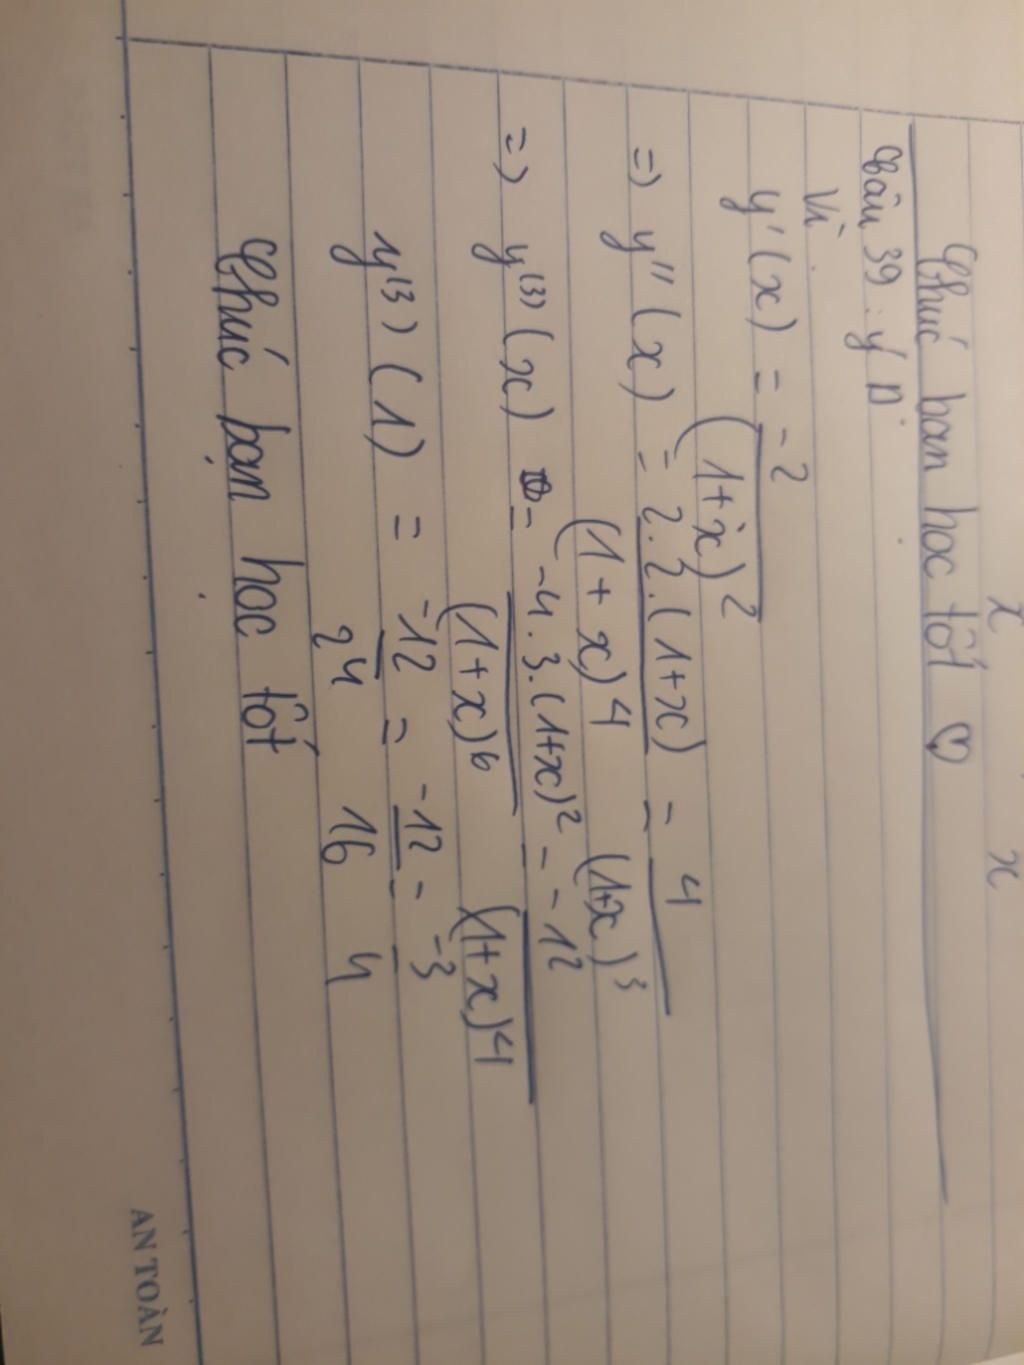 x x
Chúc bạn học tốt ♡
Câu 39: ý D
Vì:
y'(x) = -2/(1+x)²
=> y''(x) = 2.2.(1+x)/(1+x)⁴ = 4/(1+x)³
=> y⁽³⁾(x) = -4.3.(1+x)²/(1+x)⁶ = -12/(1+x)⁴
y⁽³⁾(1) = -12/2⁴ = -12/16 = -3/4
Chúc bạn học tốt
AN TOÀN